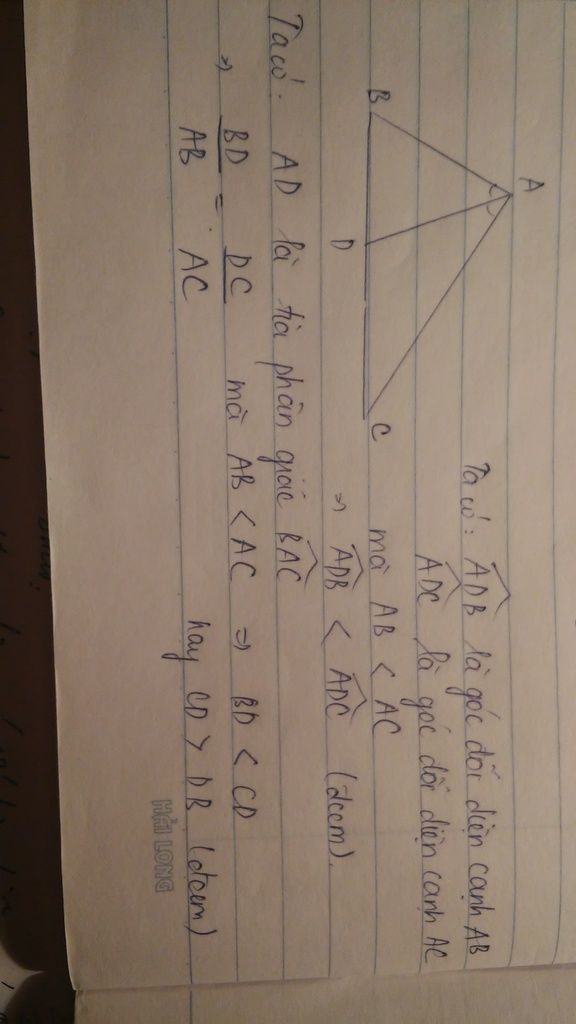 A
B
D
C
Ta có: ADB là góc đối diện cạnh AB
ADC là góc đối diện cạnh AC
mà AB < AC
=> ADB < ADC (đccm).
Ta có: AD là tia phân giác BAC
=> BD/AB = DC/AC mà AB < AC => BD < CD
hay CD > DB (đccm)
HẢI LONG